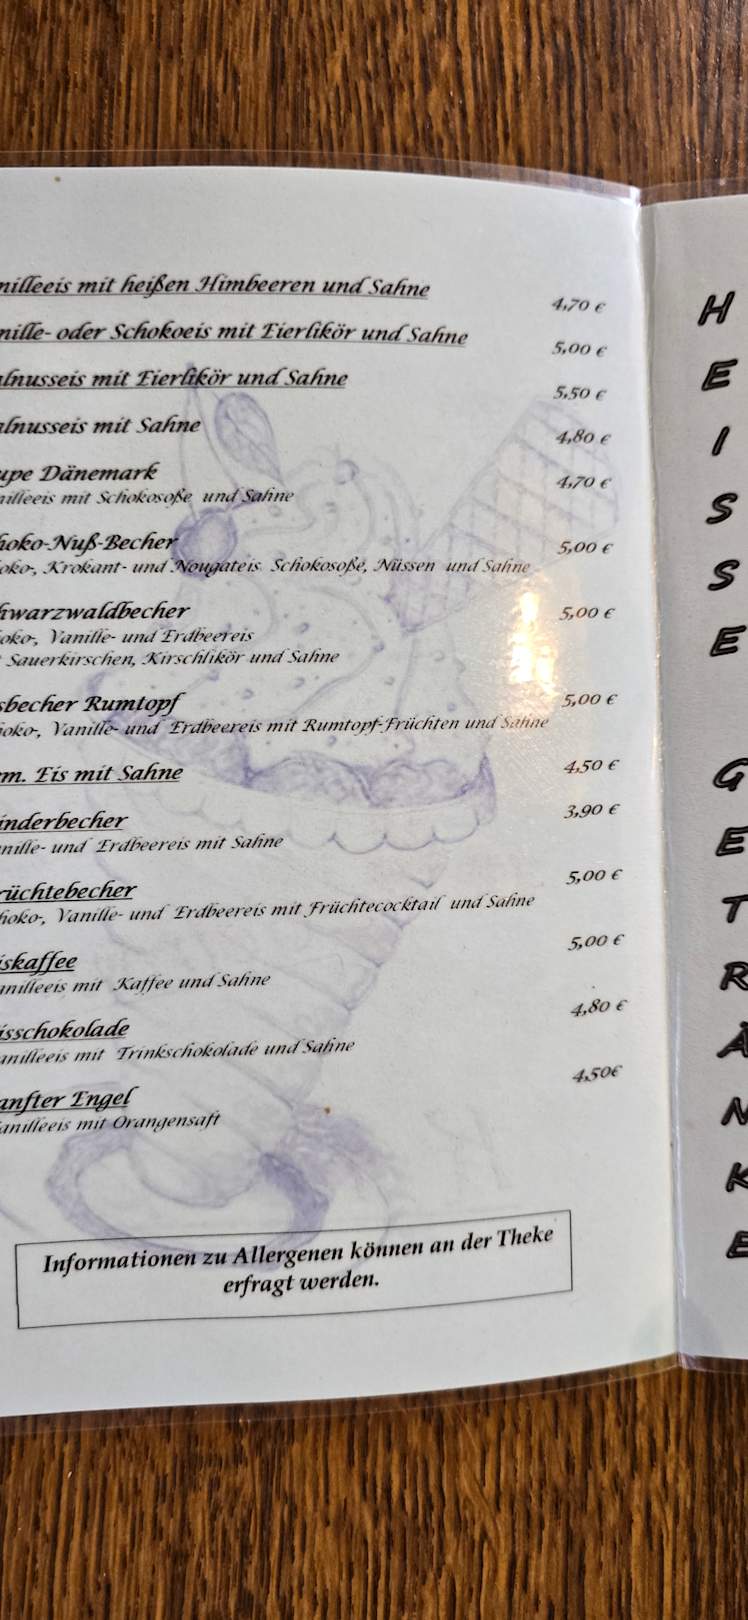 nilleeis mit heißen Himbeeren und Sahne 4,70 €
nille- oder Schokoeis mit Eierlikör und Sahne 5,00 €
lnusseis mit Eierlikör und Sahne 5,50 €
lnusseis mit Sahne 4,80 €
upe Dänemark 4,70 €
nilleeis mit Schokosoße und Sahne
hoko-Nuß-Becher 5,00 €
oko-, Krokant- und Nougateis Schokosoße, Nüssen und Sahne
hwarzwaldbecher 5,00 €
oko-, Vanille- und Erdbeereis
Sauerkirschen, Kirschlikör und Sahne
sbecher Rumtopf 5,00 €
oko-, Vanille- und Erdbeereis mit Rumtopf-Früchten und Sahne
m. Eis mit Sahne 4,50 €
inderbecher 3,90 €
nille- und Erdbeereis mit Sahne
rüchtebecher 5,00 €
hoko-, Vanille- und Erdbeereis mit Früchtecocktail und Sahne
iskaffee 5,00 €
anilleeis mit Kaffee und Sahne
isschokolade 4,80 €
anilleeis mit Trinkschokolade und Sahne
anfter Engel 4,50€
anilleeis mit Orangensaft
Informationen zu Allergenen können an der Theke
erfragt werden.
HEISSE GETRÄNKE